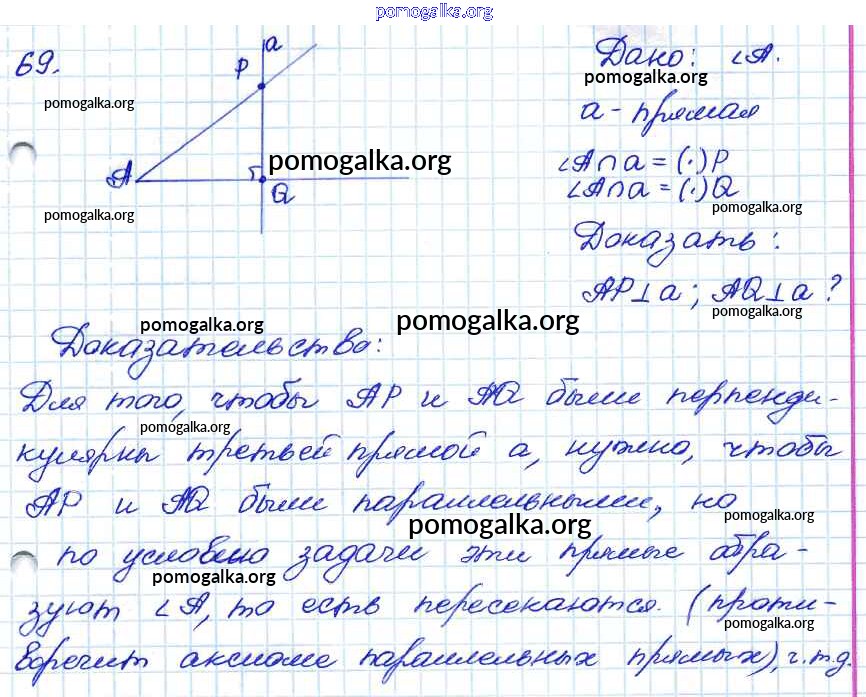 pomogalka.org
69.
a
P
Дано: ∠A.
pomogalka.org
pomogalka.org
a - прямая
pomogalka.org
∠A∩a = (·)P
A
∠A∩a = (·)Q
Q
pomogalka.org
pomogalka.org
Доказать:
AP⊥a; AQ⊥a?
pomogalka.org
pomogalka.org
pomogalka.org
Доказательство:
Для того, чтобы AP и AQ были перпенди-
pomogalka.org
кулярны третьей прямой a, нужно, чтобы
AP и AQ были параллельными, но
pomogalka.org
pomogalka.org
по условию задачи эти прямые обра-
pomogalka.org
зуют ∠A, то есть пересекаются. (проти-
pomogalka.org
воречит аксиоме параллельных прямых), ч.т.д.